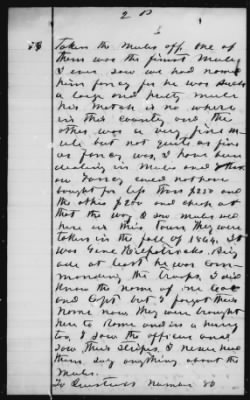 2
taken the mules off one of
them was the finest mule
I ever saw we had named
him fancy for he was such
a large and pretty mule
his match is no where
in this county and the
other was a very fine m
ule but not quite as fine
as Fancy was, I have been
dealing in mules and
Fancy could not have
bought for less than $250 and
the other $200 and cheap at
that the way I saw mules sell
here in this town They were
taken in the fall of 1864. It
was Genl Kilpatrick
one at least he was com
manding the troops, I did
know the name of one
and Capt but I forgot their
name now they were brought
here to Rome and in a hurry
too, I saw the officer and
saw their stripes. I never heard
them say anything about the
mules.
To Question Number 80